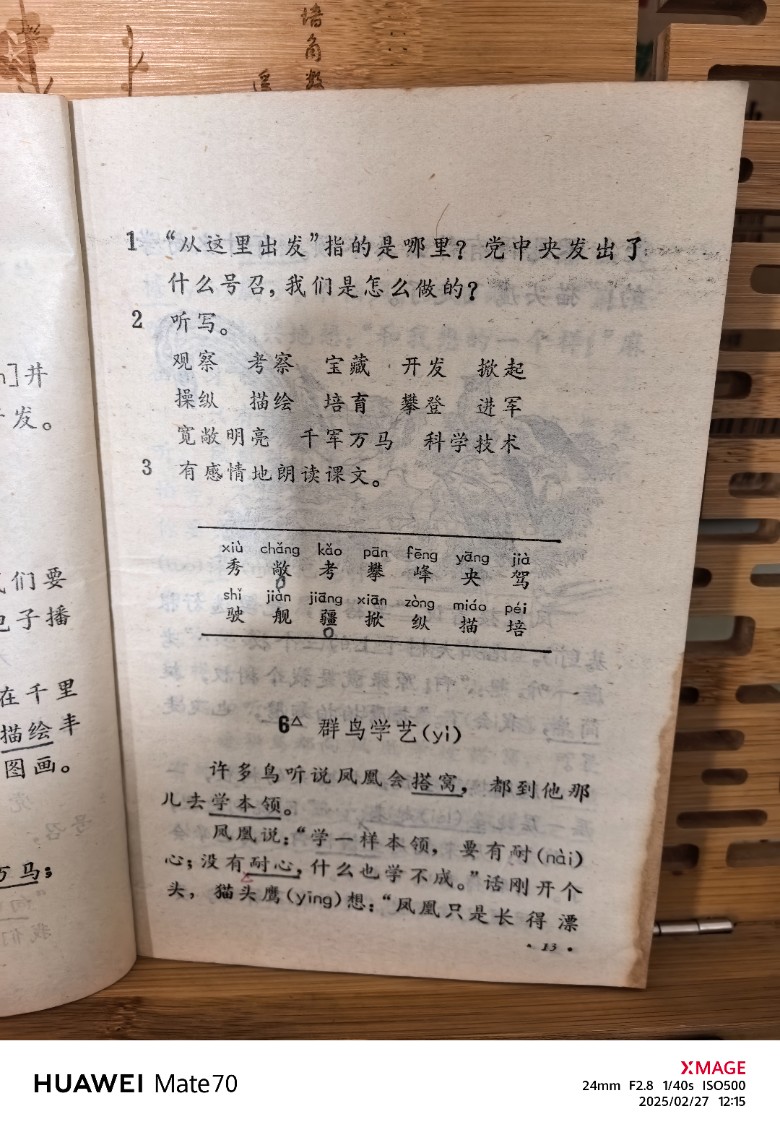 墙角数
遥
1 “从这里出发”指的是哪里？党中央发出了
什么号召，我们是怎么做的？
2 听写。
观察 考察 宝藏 开发 掀起
操纵 描绘 培育 攀登 进军
宽敞明亮 千军万马 科学技术
3 有感情地朗读课文。
xiù chǎng kǎo pān fēng yāng jià
秀 敞 考 攀 峰 央 驾
shǐ jiàn jiāng xiān zòng miáo péi
驶 舰 疆 掀 纵 描 培
6△ 群鸟学艺(yì)
许多鸟听说凤凰会搭窝，都到他那
儿去学本领。
凤凰说：“学一样本领，要有耐(nài)
心；没有耐心，什么也学不成。”话刚开个
头，猫头鹰(yīng)想：“凤凰只是长得漂
·13·
]井
发。
们要
电子播
在千里
描绘丰
图画。
万马；
HUAWEI Mate70
XMAGE
24mm F2.8 1/40s ISO500
2025/02/27 12:15